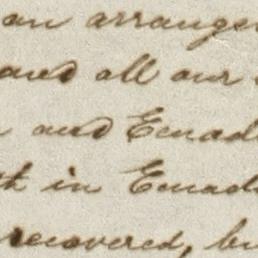 an arrange
ared all our
and Ecuad
th in Ecuad
recovered, bu